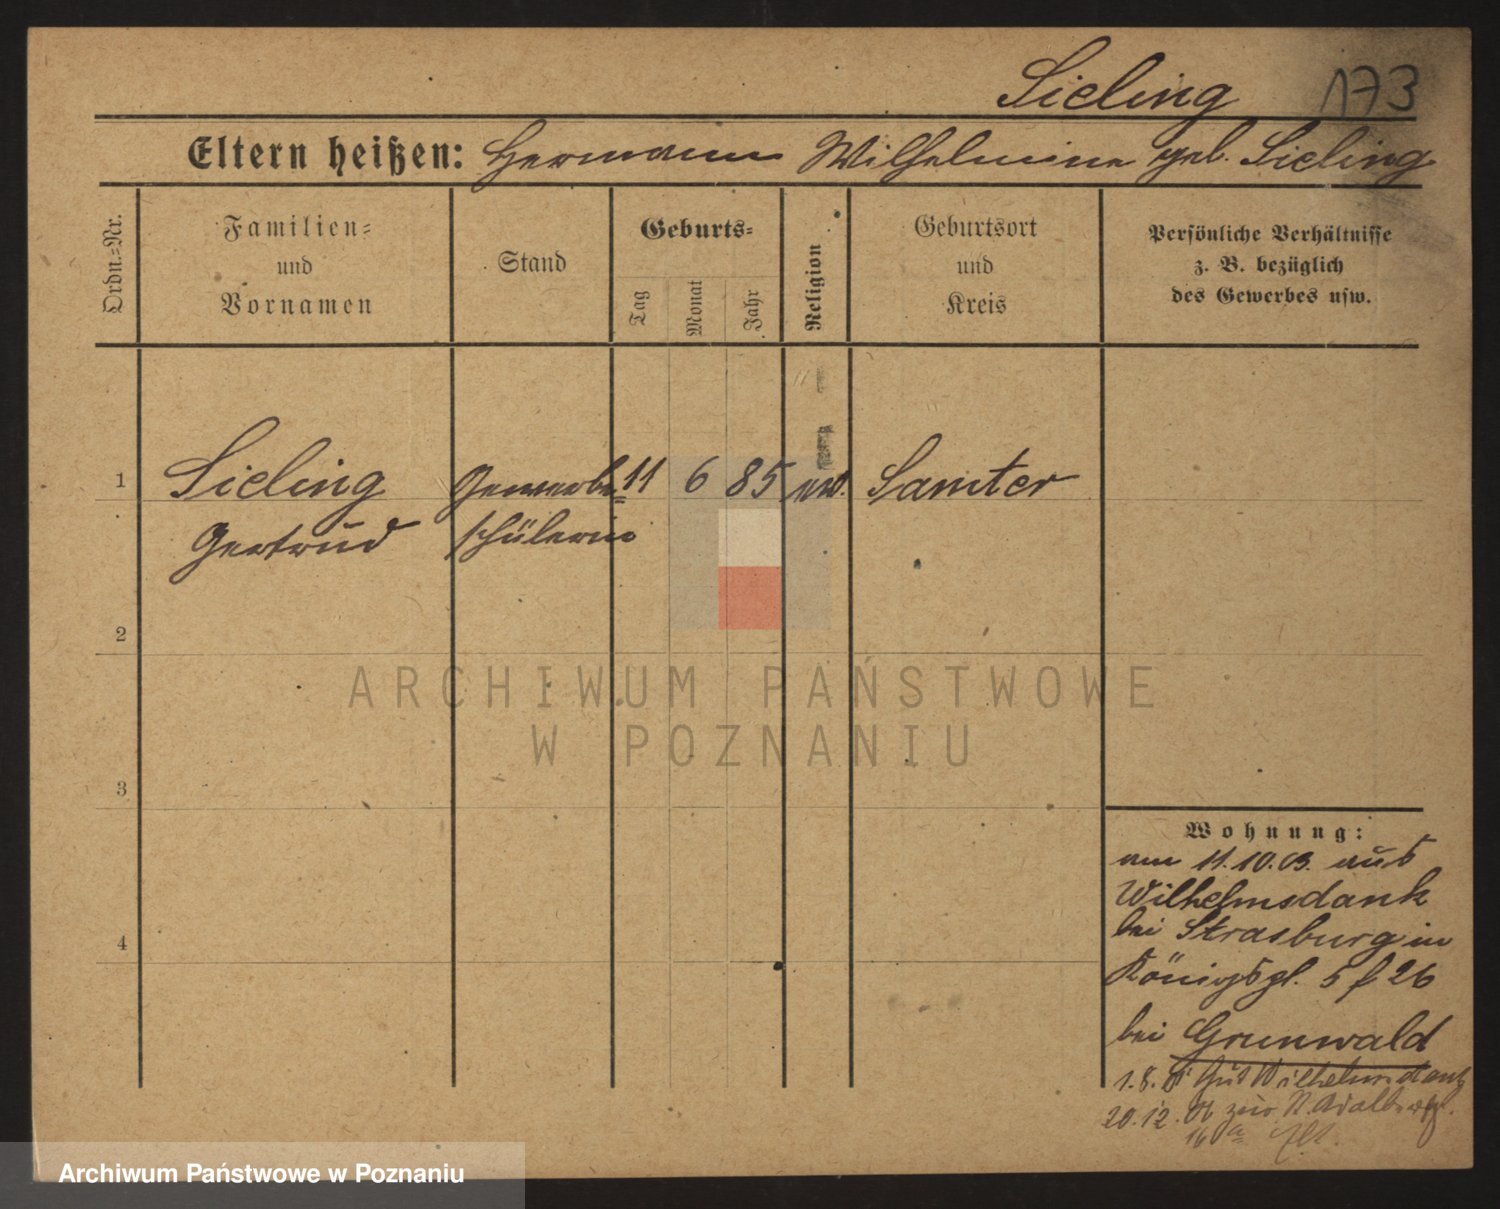 Sieling 173
Eltern heißen: Hermann Wilhelmine geb. Sieling
Ordn.-Nr.
Familien-
und
Vornamen
Stand
Geburts-
Tag
Monat
Jahr
Religion
Geburtsort
und
Kreis
Persönliche Verhältnisse
z. B. bezüglich
des Gewerbes usw.
1 Sieling Gewerbe= 11 6 85 ev. Samter
Gertrud schülerin
2
3
4
Wohnung:
am 11.10.03. aus
Wilhelmsdank
bei Strasburg in
Königspl. 5 f 26
bei Grunwald
1.8. Gut Wilhelmsdank
20.12. 06 zur
16a
ARCHIWUM PAŃSTWOWE
W POZNANIU
Archiwum Państwowe w Poznaniu